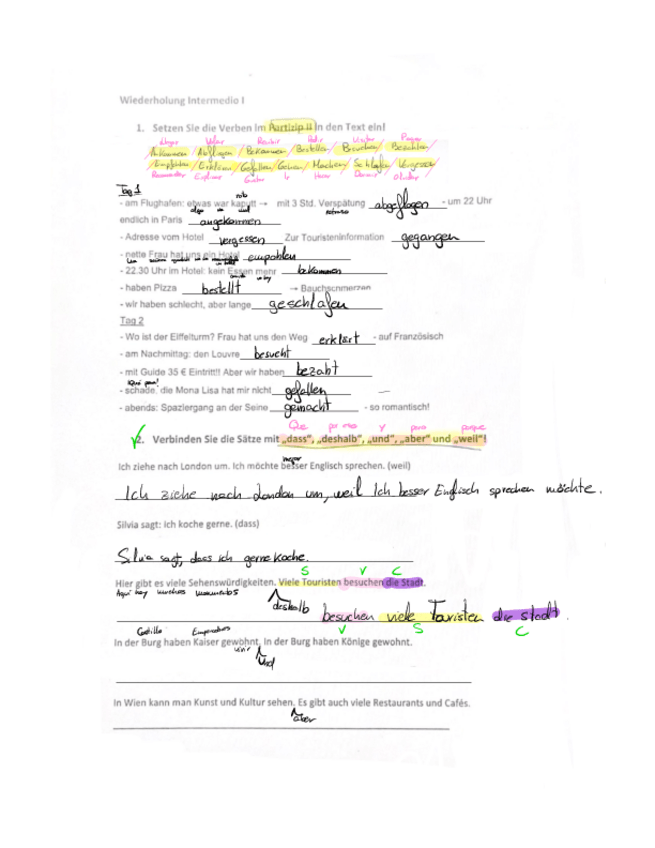 Wiederholung Intermedio I
1. Setzen Sie die Verben im Partizip II in den Text ein!
Llegar Volar Recibir Pedir Visitar Pagar
Ankommen / Abfliegen / Bekommen / Bestellen / Besuchen / Bezahlen /
Empfehlen / Erklären / Gefallen / Gehen / Machen / Schlafen / Vergessen
Recomendar Explicar Gustar Ir Hacer Dormir Olvidar
Tag 1
- am Flughafen: etwas war kaputt → mit 3 Std. Verspätung abgeflogen - um 22 Uhr
endlich in Paris angekommen
- Adresse vom Hotel vergessen Zur Touristeninformation gegangen
- nette Frau hat uns ein Hotel empohlen
- 22.30 Uhr im Hotel: kein Essen mehr bekommen
- haben Pizza bestellt → Bauchschmerzen
- wir haben schlecht, aber lange geschlafen
Tag 2
- Wo ist der Eiffelturm? Frau hat uns den Weg erklärt - auf Französisch
- am Nachmittag: den Louvre besucht
- mit Guide 35 € Eintritt!! Aber wir haben bezahlt
- schade, die Mona Lisa hat mir nicht gefallen
- abends: Spaziergang an der Seine gemacht - so romantisch!
Que por eso y pero porque
2. Verbinden Sie die Sätze mit „dass", „deshalb", „und", „aber" und „weil"!
mejor
Ich ziehe nach London um. Ich möchte besser Englisch sprechen. (weil)
Ich ziehe nach London um, weil Ich besser Englisch sprechen möchte.
Silvia sagt: ich koche gerne. (dass)
Silvia sagt, dass ich gerne koche.
S V C
Hier gibt es viele Sehenswürdigkeiten. Viele Touristen besuchen die Stadt.
Aquí hay muchos monumentos
deshalb besuchen viele Touristen die stadt.
V S C
Castillo Emperadores
In der Burg haben Kaiser gewohnt. In der Burg haben Könige gewohnt.
vivir Und
In Wien kann man Kunst und Kultur sehen. Es gibt auch viele Restaurants und Cafés.
aber